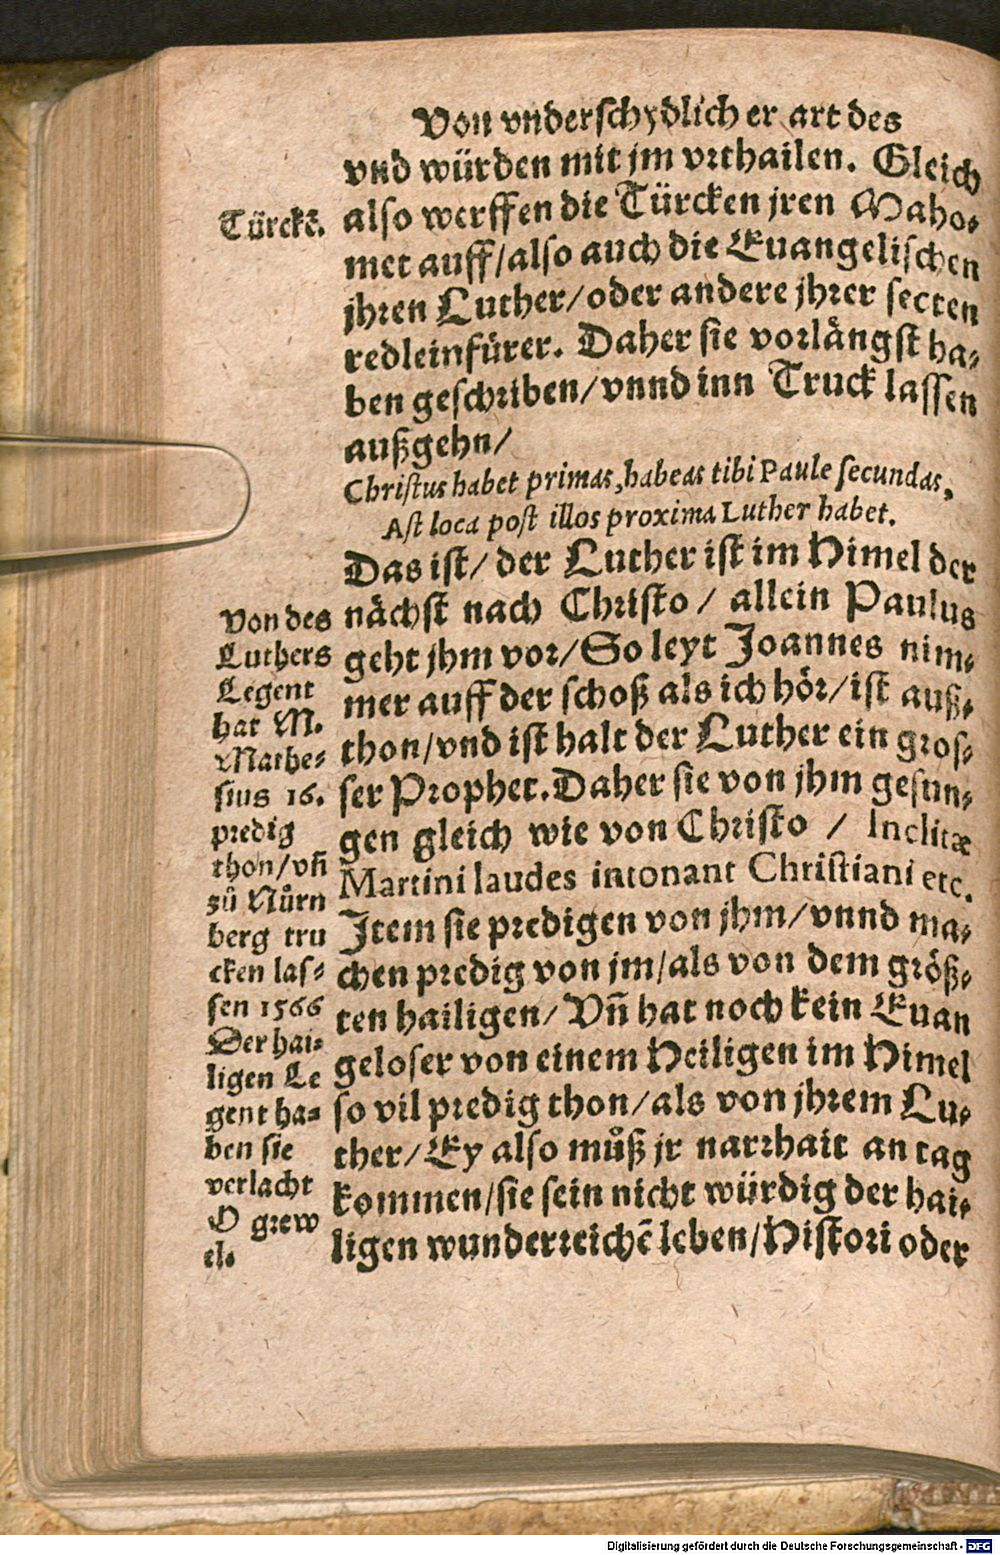 Von vnderschydlicher art des
vnd würden mit jm vrthailen. Gleich
also werffen die Türcken jren Maho-
met auff/also auch die Euangelischen
jhren Luther/oder andere jhrer secten
redleinfürer. Daher sie vorlängst ha-
ben geschriben/vnnd inn Truck lassen
außgehn/
Christus habet primas, habeas tibi Paule secundas,
Ast loca post illos proxima Luther habet.
Das ist/ der Luther ist im Himel der
nächst nach Christo / allein Paulus
geht jhm vor/So leyt Joannes nim-
mer auff der schoß als ich hör/ist auß-
thon/vnd ist halt der Luther ein gros-
ser Prophet. Daher sie von jhm gesun-
gen gleich wie von Christo / Inclitæ
Martini laudes intonant Christiani etc.
Item sie predigen von jhm/vnnd ma-
chen predig von jm/als von dem größ-
ten hailigen/Vñ hat noch kein Euan
geloser von einem Heiligen im Himel
so vil predig thon/als von jhrem Lu-
ther/Ey also můß jr narrhait an tag
kommen/sie sein nicht würdig der hai-
ligen wunderreichẽ leben/Histori oder
Türckẽ.
Von des
Luthers
Legent
hat M.
Mathe-
sius 16.
predig
thon/vñ
zů Nůrn
berg tru
cken las-
sen 1566
Der hai-
ligen Le
gent ha-
ben sie
verlacht
O grew
el.
Digitalisierung gefördert durch die Deutsche Forschungsgemeinschaft - DFG